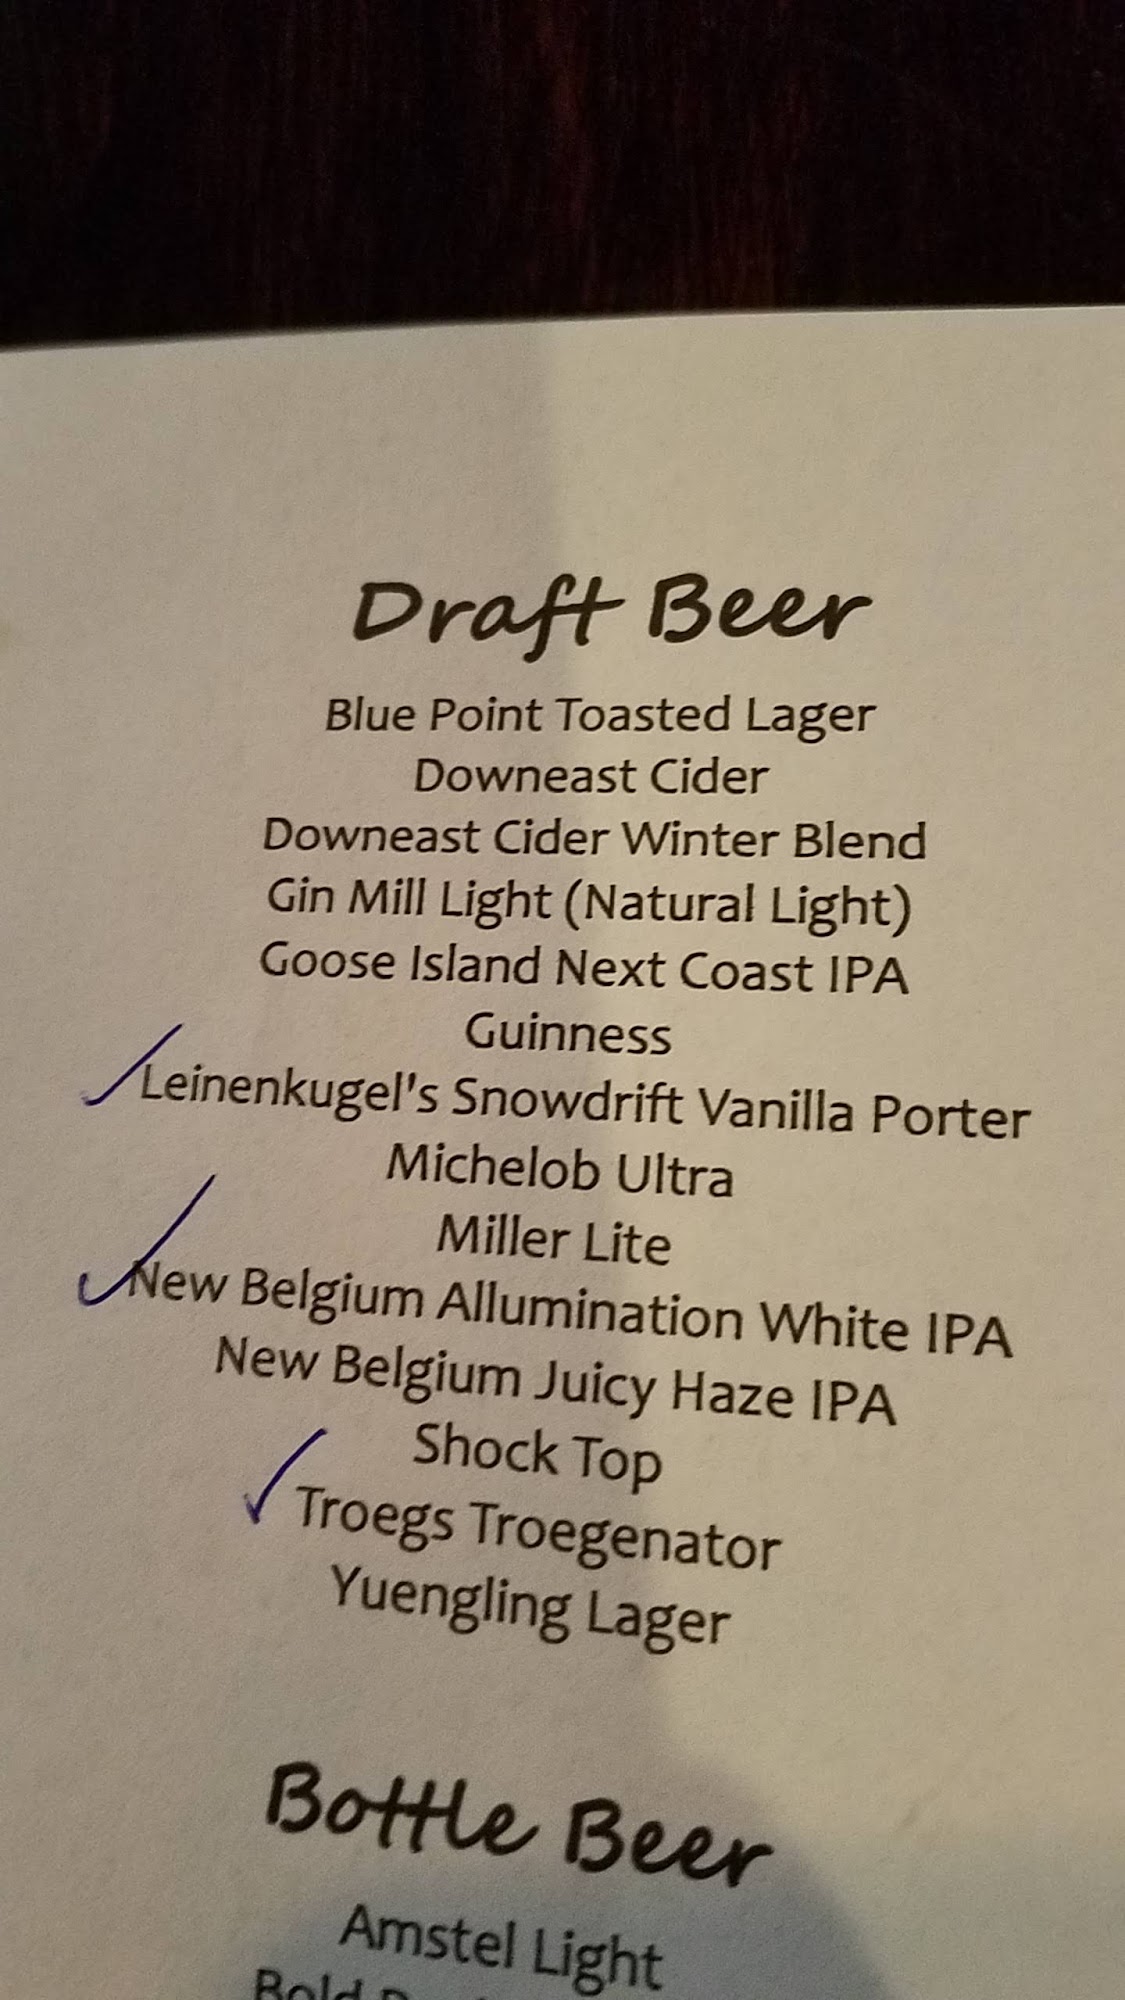 Draft Beer
Blue Point Toasted Lager
Downeast Cider
Downeast Cider Winter Blend
Gin Mill Light (Natural Light)
Goose Island Next Coast IPA
Guinness
Leinenkugel's Snowdrift Vanilla Porter
Michelob Ultra
Miller Lite
New Belgium Allumination White IPA
New Belgium Juicy Haze IPA
Shock Top
Troegs Troegenator
Yuengling Lager
Bottle Beer
Amstel Light
Bold